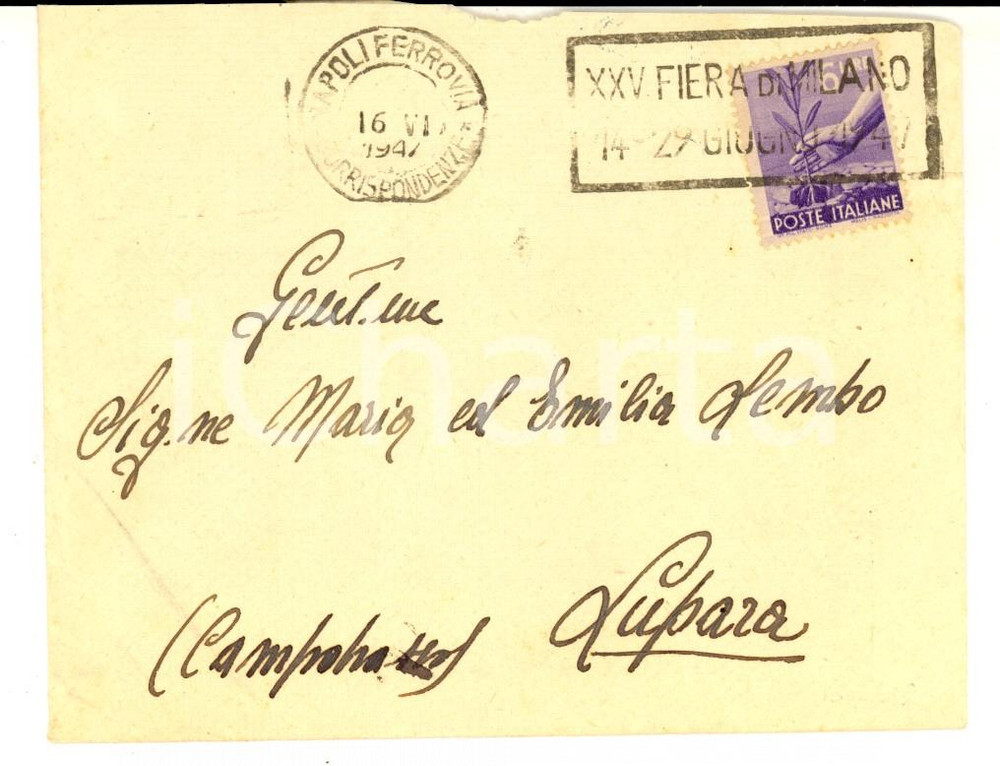 NAPOLI FERROVIA
16 VI
1947
CORRISPONDENZE
XXV. FIERA DI MILANO
14-29 GIUGNO 1947
6 LIRE
POSTE ITALIANE
Gent.me
Sig.ne Maria ed Emilia Lembo
Lupara
(Campobasso)
iCharta